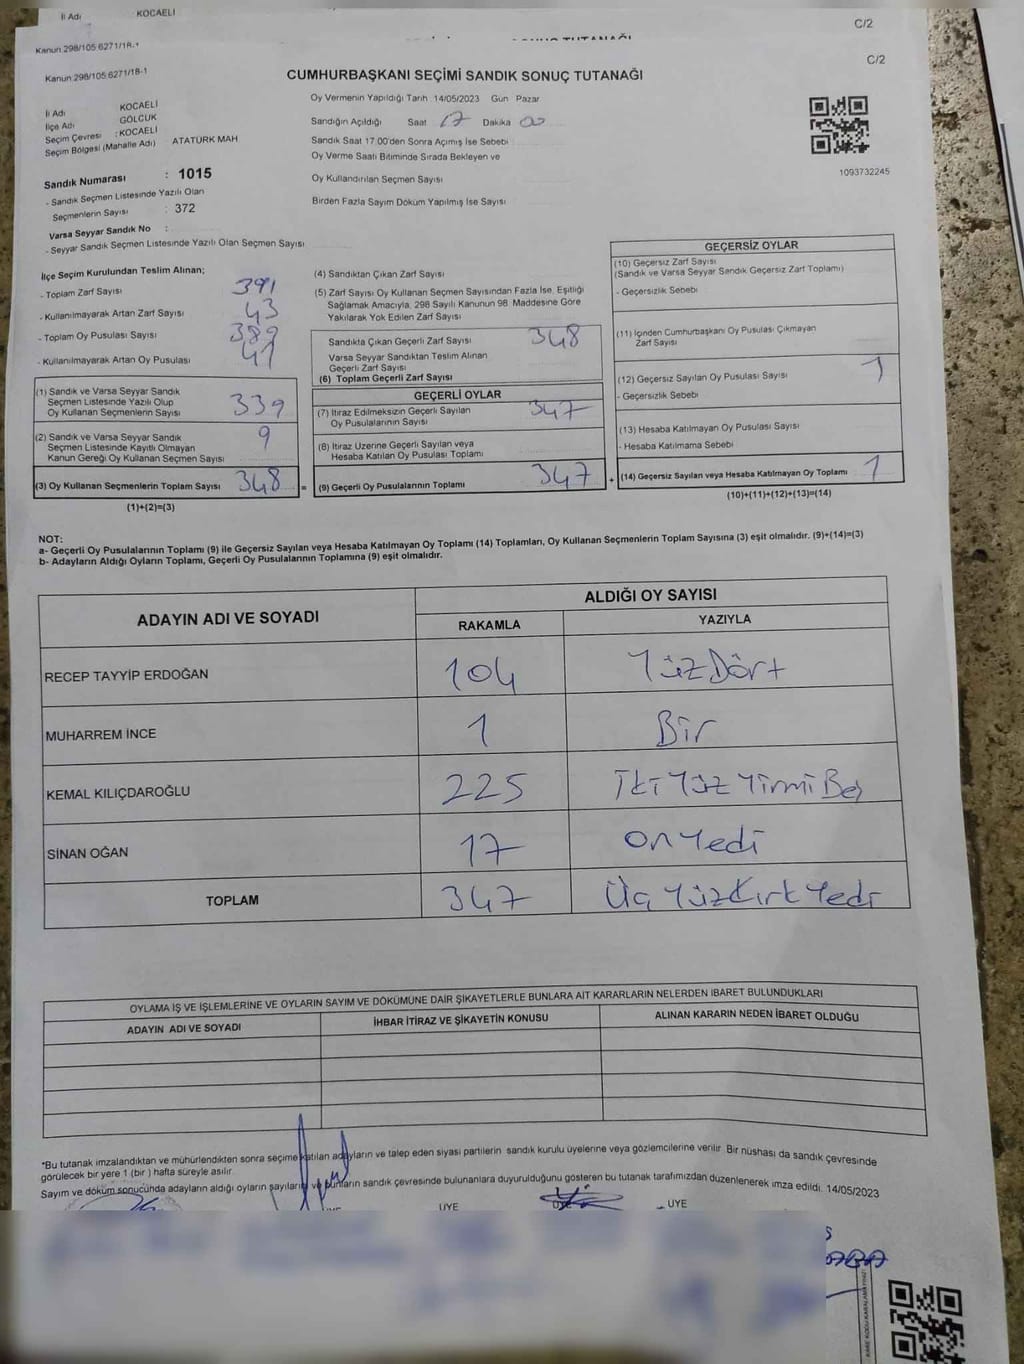 İl Adı KOCAELİ
C/2
Kanun 298/105 6271/18-1
SONUÇ TUTANAĞI
C/2
Kanun 298/105 6271/18-1
CUMHURBAŞKANI SEÇİMİ SANDIK SONUÇ TUTANAĞI
İl Adı KOCAELİ
İlçe Adı GÖLCÜK
Seçim Çevresi : KOCAELİ
Seçim Bölgesi (Mahalle Adı) ATATÜRK MAH
Sandık Numarası : 1015
- Sandık Seçmen Listesinde Yazılı Olan
Seçmenlerin Sayısı : 372
Varsa Seyyar Sandık No :
- Seyyar Sandık Seçmen Listesinde Yazılı Olan Seçmen Sayısı
Oy Vermenin Yapıldığı Tarih 14/05/2023 Gün Pazar
Sandığın Açıldığı Saat 17 Dakika 00
Sandık Saat 17.00'den Sonra Açımış İse Sebebi
Oy Verme Saati Bitiminde Sırada Bekleyen ve
Oy Kullandırılan Seçmen Sayısı
Birden Fazla Sayım Döküm Yapılmış İse Sayısı
1093732245
İlçe Seçim Kurulundan Teslim Alınan;
- Toplam Zarf Sayısı 391
- Kullanılmayarak Artan Zarf Sayısı 43
- Toplam Oy Pusulası Sayısı 389
- Kullanılmayarak Artan Oy Pusulası 41
(1) Sandık ve Varsa Seyyar Sandık
Seçmen Listesinde Yazılı Olup
Oy Kullanan Seçmenlerin Sayısı 339
(2) Sandık ve Varsa Seyyar Sandık
Seçmen Listesinde Kayıtlı Olmayan
Kanun Gereği Oy Kullanan Seçmen Sayısı 9
(3) Oy Kullanan Seçmenlerin Toplam Sayısı 348
(1)+(2)=(3)
=
(4) Sandıktan Çıkan Zarf Sayısı
(5) Zarf Sayısı Oy Kullanan Seçmen Sayısından Fazla İse, Eşitliği
Sağlamak Amacıyla, 298 Sayılı Kanunun 98. Maddesine Göre
Yakılarak Yok Edilen Zarf Sayısı
Sandıkta Çıkan Geçerli Zarf Sayısı 348
Varsa Seyyar Sandıktan Teslim Alınan
Geçerli Zarf Sayısı
(6) Toplam Geçerli Zarf Sayısı
GEÇERLİ OYLAR
(7) İtiraz Edilmeksizin Geçerli Sayılan
Oy Pusulalarının Sayısı 347
(8) İtiraz Üzerine Geçerli Sayılan veya
Hesaba Katılan Oy Pusulası Toplamı
(9) Geçerli Oy Pusulalarının Toplamı 347
+
GEÇERSİZ OYLAR
(10) Geçersiz Zarf Sayısı
(Sandık ve Varsa Seyyar Sandık Geçersiz Zarf Toplamı)
- Geçersizlik Sebebi
(11) İçinden Cumhurbaşkanı Oy Pusulası Çıkmayan
Zarf Sayısı
(12) Geçersiz Sayılan Oy Pusulası Sayısı 1
- Geçersizlik Sebebi
(13) Hesaba Katılmayan Oy Pusulası Sayısı
- Hesaba Katılmama Sebebi
(14) Geçersiz Sayılan veya Hesaba Katılmayan Oy Toplamı 1
(10)+(11)+(12)+(13)=(14)
NOT:
a- Geçerli Oy Pusulalarının Toplamı (9) ile Geçersiz Sayılan veya Hesaba Katılmayan Oy Toplamı (14) Toplamları, Oy Kullanan Seçmenlerin Toplam Sayısına (3) eşit olmalıdır. (9)+(14)=(3)
b- Adayların Aldığı Oyların Toplamı, Geçerli Oy Pusulalarının Toplamına (9) eşit olmalıdır.
ADAYIN ADI VE SOYADI ALDIĞI OY SAYISI
RAKAMLA YAZIYLA
RECEP TAYYİP ERDOĞAN 104 YüzDört
MUHARREM İNCE 1 Bir
KEMAL KILIÇDAROĞLU 225 İki Yüz Yirmi Beş
SİNAN OĞAN 17 On Yedi
TOPLAM 347 Üç Yüz Kırk Yedi
OYLAMA İŞ VE İŞLEMLERİNE VE OYLARIN SAYIM VE DÖKÜMÜNE DAİR ŞİKAYETLERLE BUNLARA AİT KARARLARIN NELERDEN İBARET BULUNDUKLARI
ADAYIN ADI VE SOYADI İHBAR İTİRAZ VE ŞİKAYETİN KONUSU ALINAN KARARIN NEDEN İBARET OLDUĞU
*Bu tutanak imzalandıktan ve mühürlendikten sonra seçime katılan adayların ve talep eden siyasi partilerin sandık kurulu üyelerine veya gözlemcilerine verilir. Bir nüshası da sandık çevresinde
görülecek bir yere 1 (bir ) hafta süreyle asılır.
Sayım ve döküm sonucunda adayların aldığı oyların sayıları ve bunların sandık çevresinde bulunanlara duyurulduğunu gösteren bu tutanak tarafımızdan düzenlenerek imza edildi. 14/05/2023
ÜYE ÜYE ÜYE